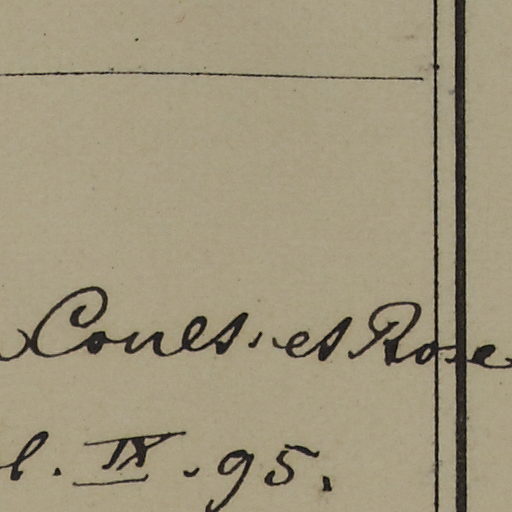 Coult. et Rose
l. IX. 95.